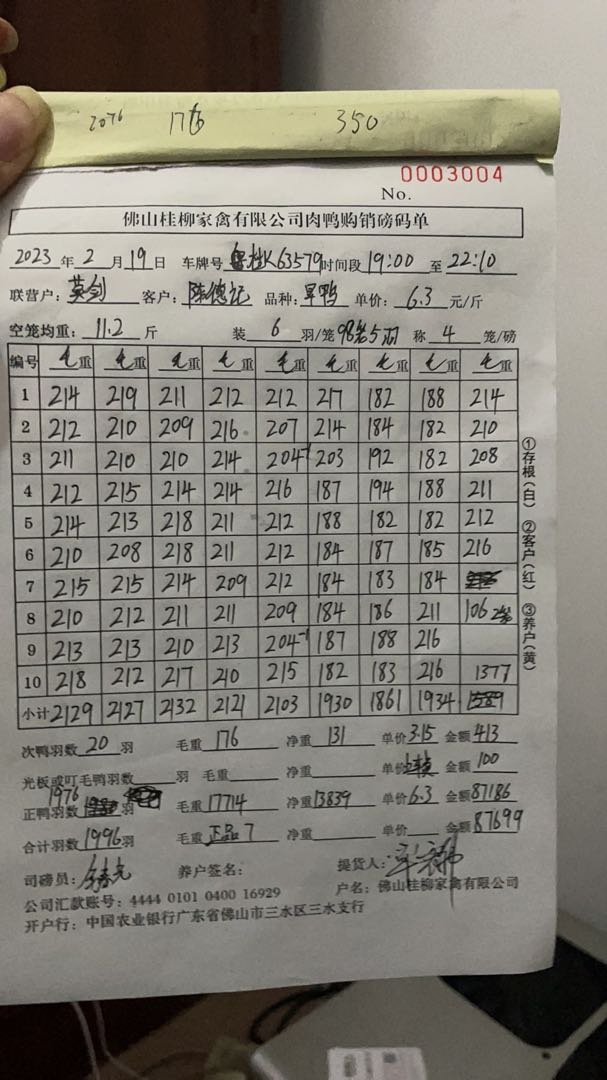 2076 176 350
0003004
No.
佛山桂柳家禽有限公司肉鸭购销磅码单
2023 年 2 月 19 日 车牌号 K63579 时间段 19:00 至 22:10
联营户： 英剑 客户： 陈德记 品种： 旱鸭 单价： 6.3 元/斤
空笼均重： 11.2 斤 装 6 羽/笼 98笼5羽 称 4 笼/磅
编号 毛重 毛重 毛重 毛重 毛重 毛重 毛重 毛重 毛重
1 214 219 211 212 212 217 182 188 214
2 212 210 209 216 207 214 184 182 210
3 211 210 210 214 204-1 203 192 182 208
4 212 215 214 214 216 187 194 188 211
5 214 213 218 211 212 188 182 182 212
6 210 208 218 211 212 184 187 185 216
7 215 215 214 209 212 184 183 184
8 210 212 211 211 209 184 186 211 106 2笼
9 213 213 210 213 204-1 187 188 216
10 218 212 217 210 215 182 183 216 1377
小计 2129 2127 2132 2121 2103 1930 1861 1934 1589
①存根(白) ②客户(红) ③养户(黄)
次鸭羽数 20 羽 毛重 176 净重 131 单价 3.15 金额 413
光板或叮毛鸭羽数 羽 毛重 净重 单价 金额 100
正鸭羽数 1976 羽 毛重 17714 净重 13839 单价 6.3 金额 87186
合计羽数 1996 羽 毛重 正品7 净重 单价 金额 87699
司磅员： 养户签名： 提货人：
公司汇款账号：4444 0101 0400 16929 户名：佛山桂柳家禽有限公司
开户行：中国农业银行广东省佛山市三水区三水支行